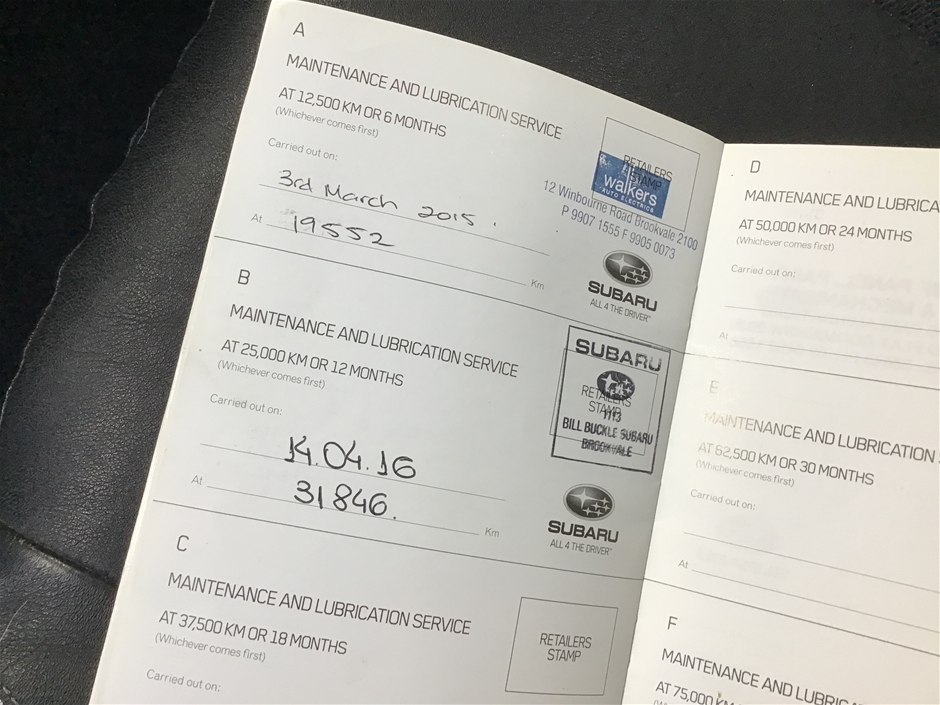 A
MAINTENANCE AND LUBRICATION SERVICE
AT 12,500 KM OR 6 MONTHS
(Whichever comes first)
Carried out on:
3rd March 2015.
At 19552 Km
RETAILERS
STAMP
walkers
AUTO ELECTRICS
12 Winbourne Road Brookvale 2100
P 9907 1555 F 9905 0073
SUBARU
ALL 4 THE DRIVER
B
MAINTENANCE AND LUBRICATION SERVICE
AT 25,000 KM OR 12 MONTHS
(Whichever comes first)
Carried out on:
14.04.16
At 31846. Km
SUBARU
RETAILERS
STAMP
1113
BILL BUCKLE SUBARU
BROOKVALE
SUBARU
ALL 4 THE DRIVER
C
MAINTENANCE AND LUBRICATION SERVICE
AT 37,500 KM OR 18 MONTHS
(Whichever comes first)
Carried out on:
RETAILERS
STAMP
D
MAINTENANCE AND LUBRICA
AT 50,000 KM OR 24 MONTHS
(Whichever comes first)
Carried out on:
At
E
MAINTENANCE AND LUBRICATION
AT 62,500 KM OR 30 MONTHS
(Whichever comes first)
Carried out on:
At
F
MAINTENANCE AND LUBRICA
AT 75,000 KM OR